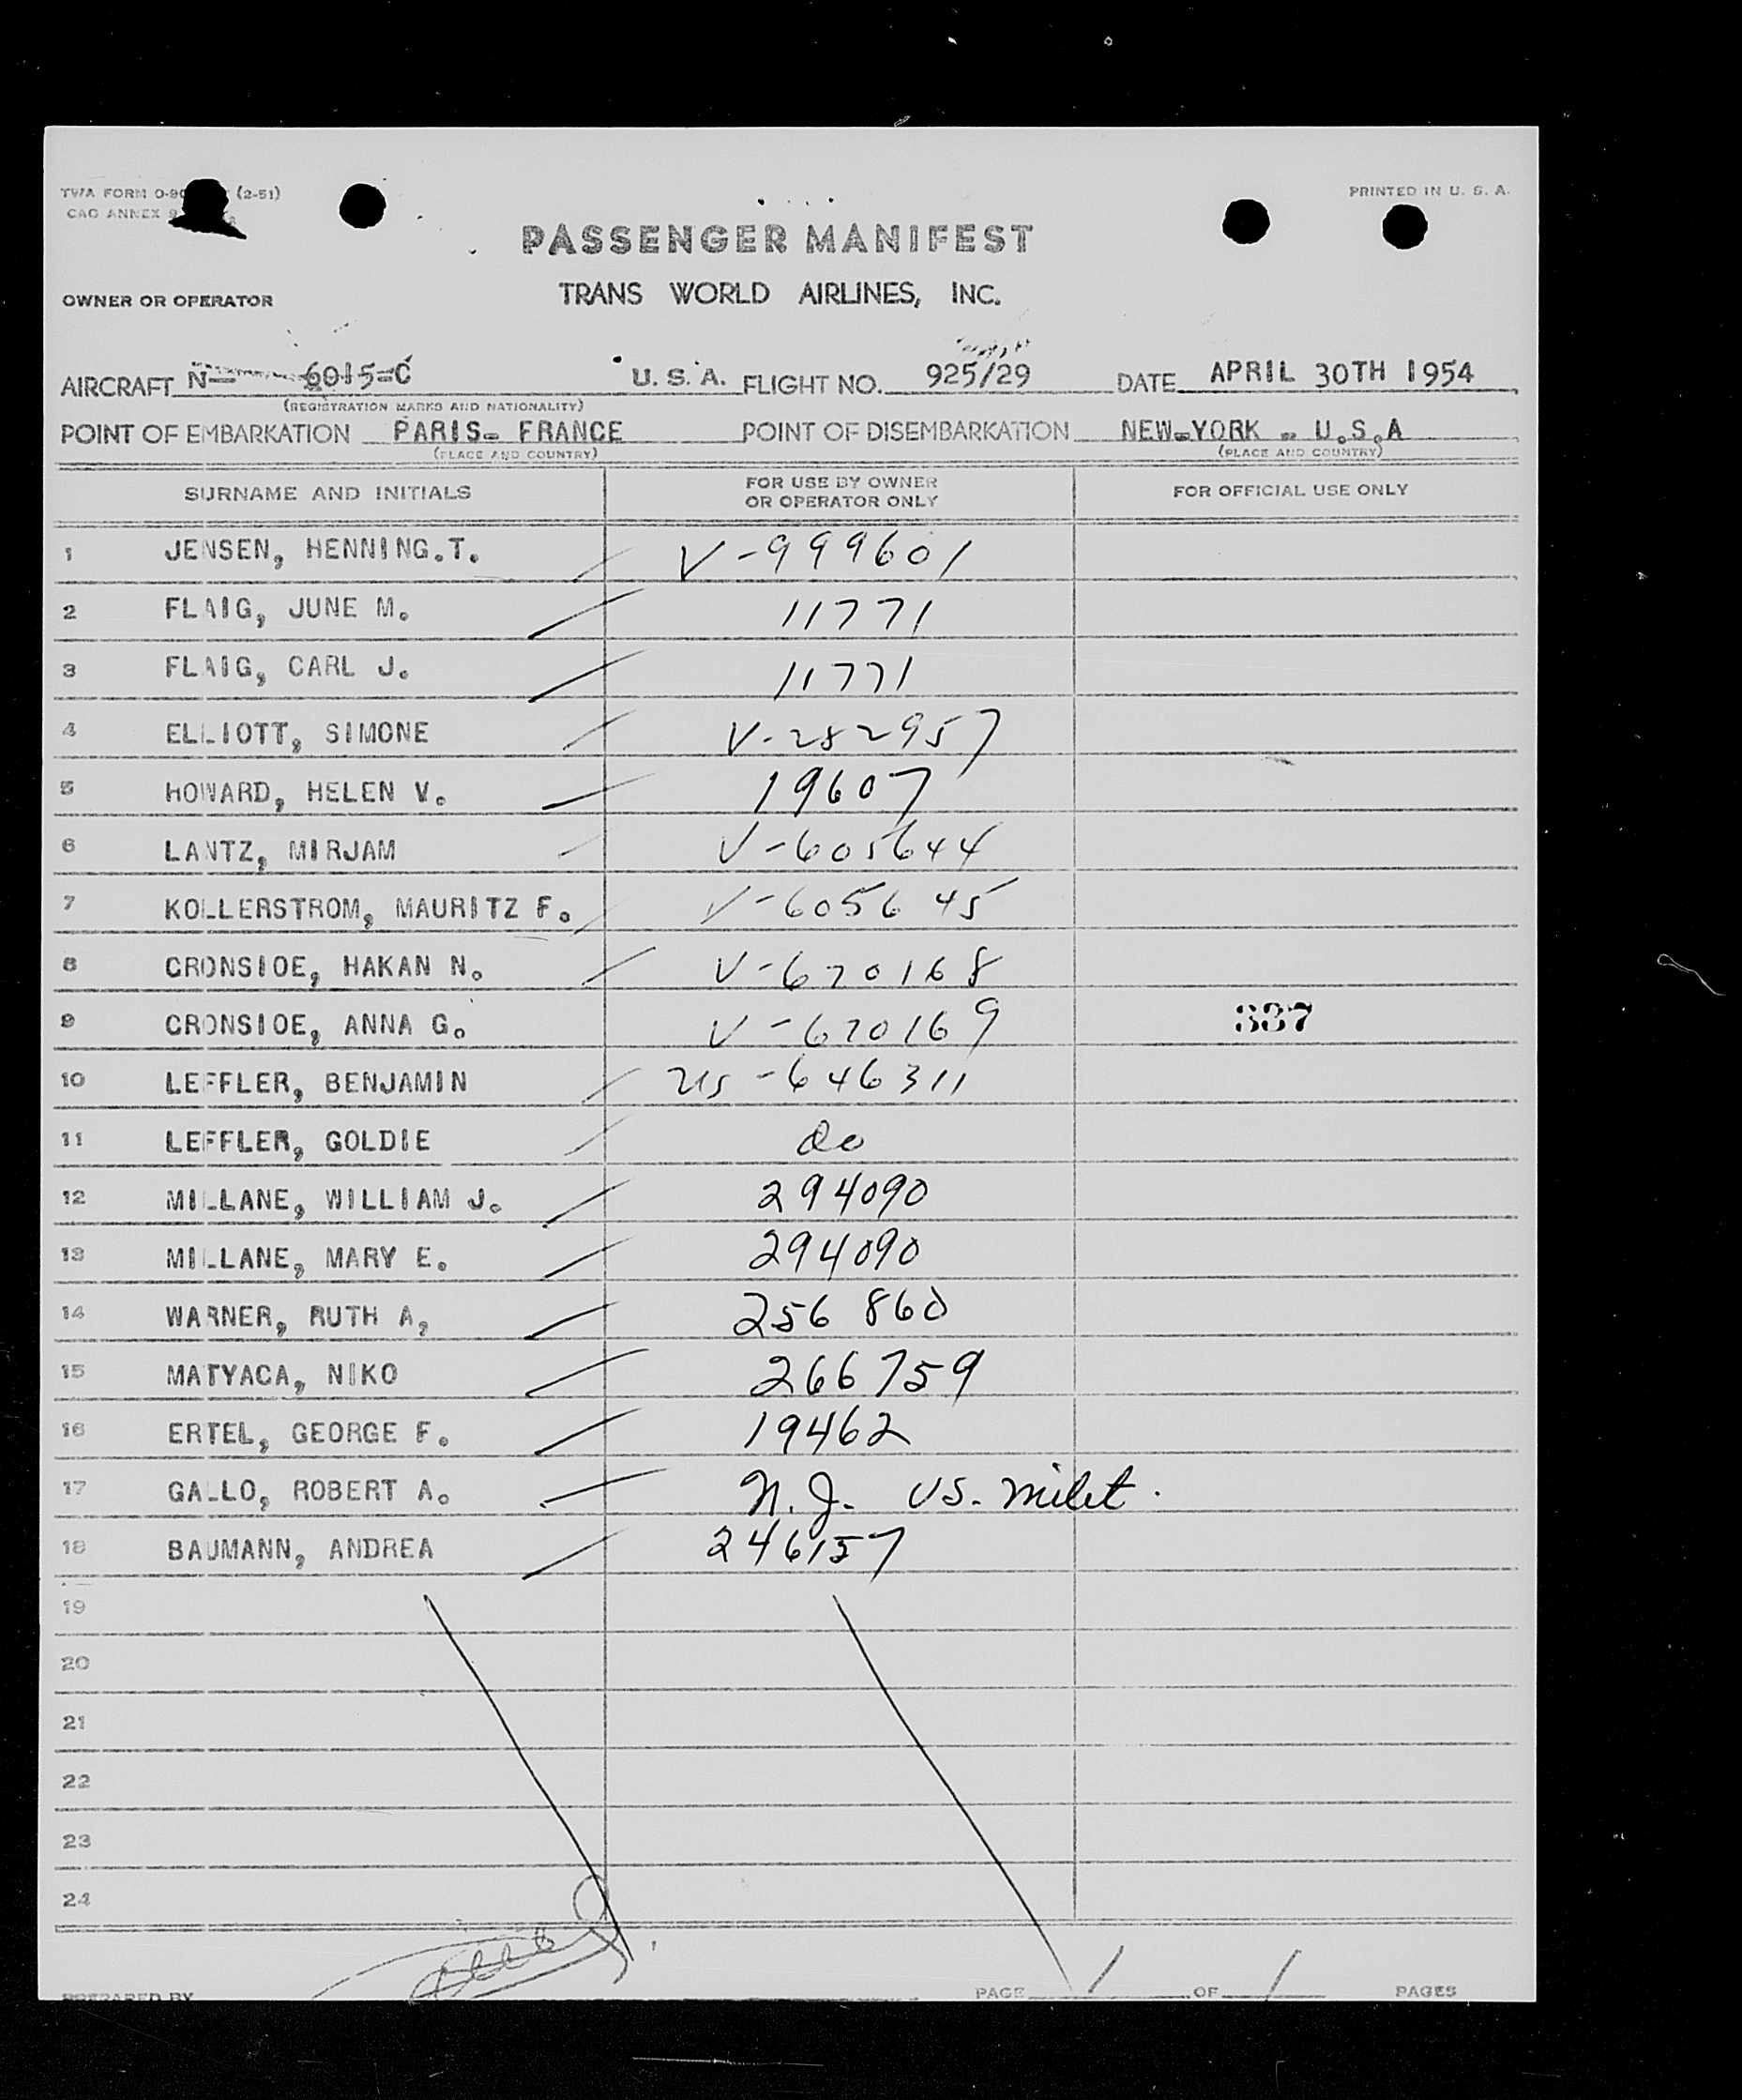 TWA FORM 0-90 (2-51)
CAO ANNEX 9
PRINTED IN U. S. A.
PASSENGER MANIFEST
OWNER OR OPERATOR
TRANS WORLD AIRLINES, INC.
AIRCRAFT N- 6015-C U. S. A. FLIGHT NO. 925/29 DATE APRIL 30TH 1954
(REGISTRATION MARKS AND NATIONALITY)
POINT OF EMBARKATION PARIS- FRANCE POINT OF DISEMBARKATION NEW-YORK - U.S.A
(PLACE AND COUNTRY) (PLACE AND COUNTRY)
SURNAME AND INITIALS FOR USE BY OWNER OR OPERATOR ONLY FOR OFFICIAL USE ONLY
1 JENSEN, HENNING.T. V-999601
2 FLAIG, JUNE M. 11771
3 FLAIG, CARL J. 11771
4 ELLIOTT, SIMONE V-282957
5 HOWARD, HELEN V. 19607
6 LANTZ, MIRJAM V-605644
7 KOLLERSTROM, MAURITZ F. V-605645
8 CRONSIOE, HAKAN N. V-670168
9 CRONSIOE, ANNA G. V-670169 337
10 LEFFLER, BENJAMIN US-646311
11 LEFFLER, GOLDIE do
12 MILLANE, WILLIAM J. 294090
13 MILLANE, MARY E. 294090
14 WARNER, RUTH A, 256 860
15 MATYACA, NIKO 266759
16 ERTEL, GEORGE F. 19462
17 GALLO, ROBERT A. N.J. US. milit.
18 BAUMANN, ANDREA 246157
19
20
21
22
23
24
PREPARED BY PAGE 1 OF 1 PAGES